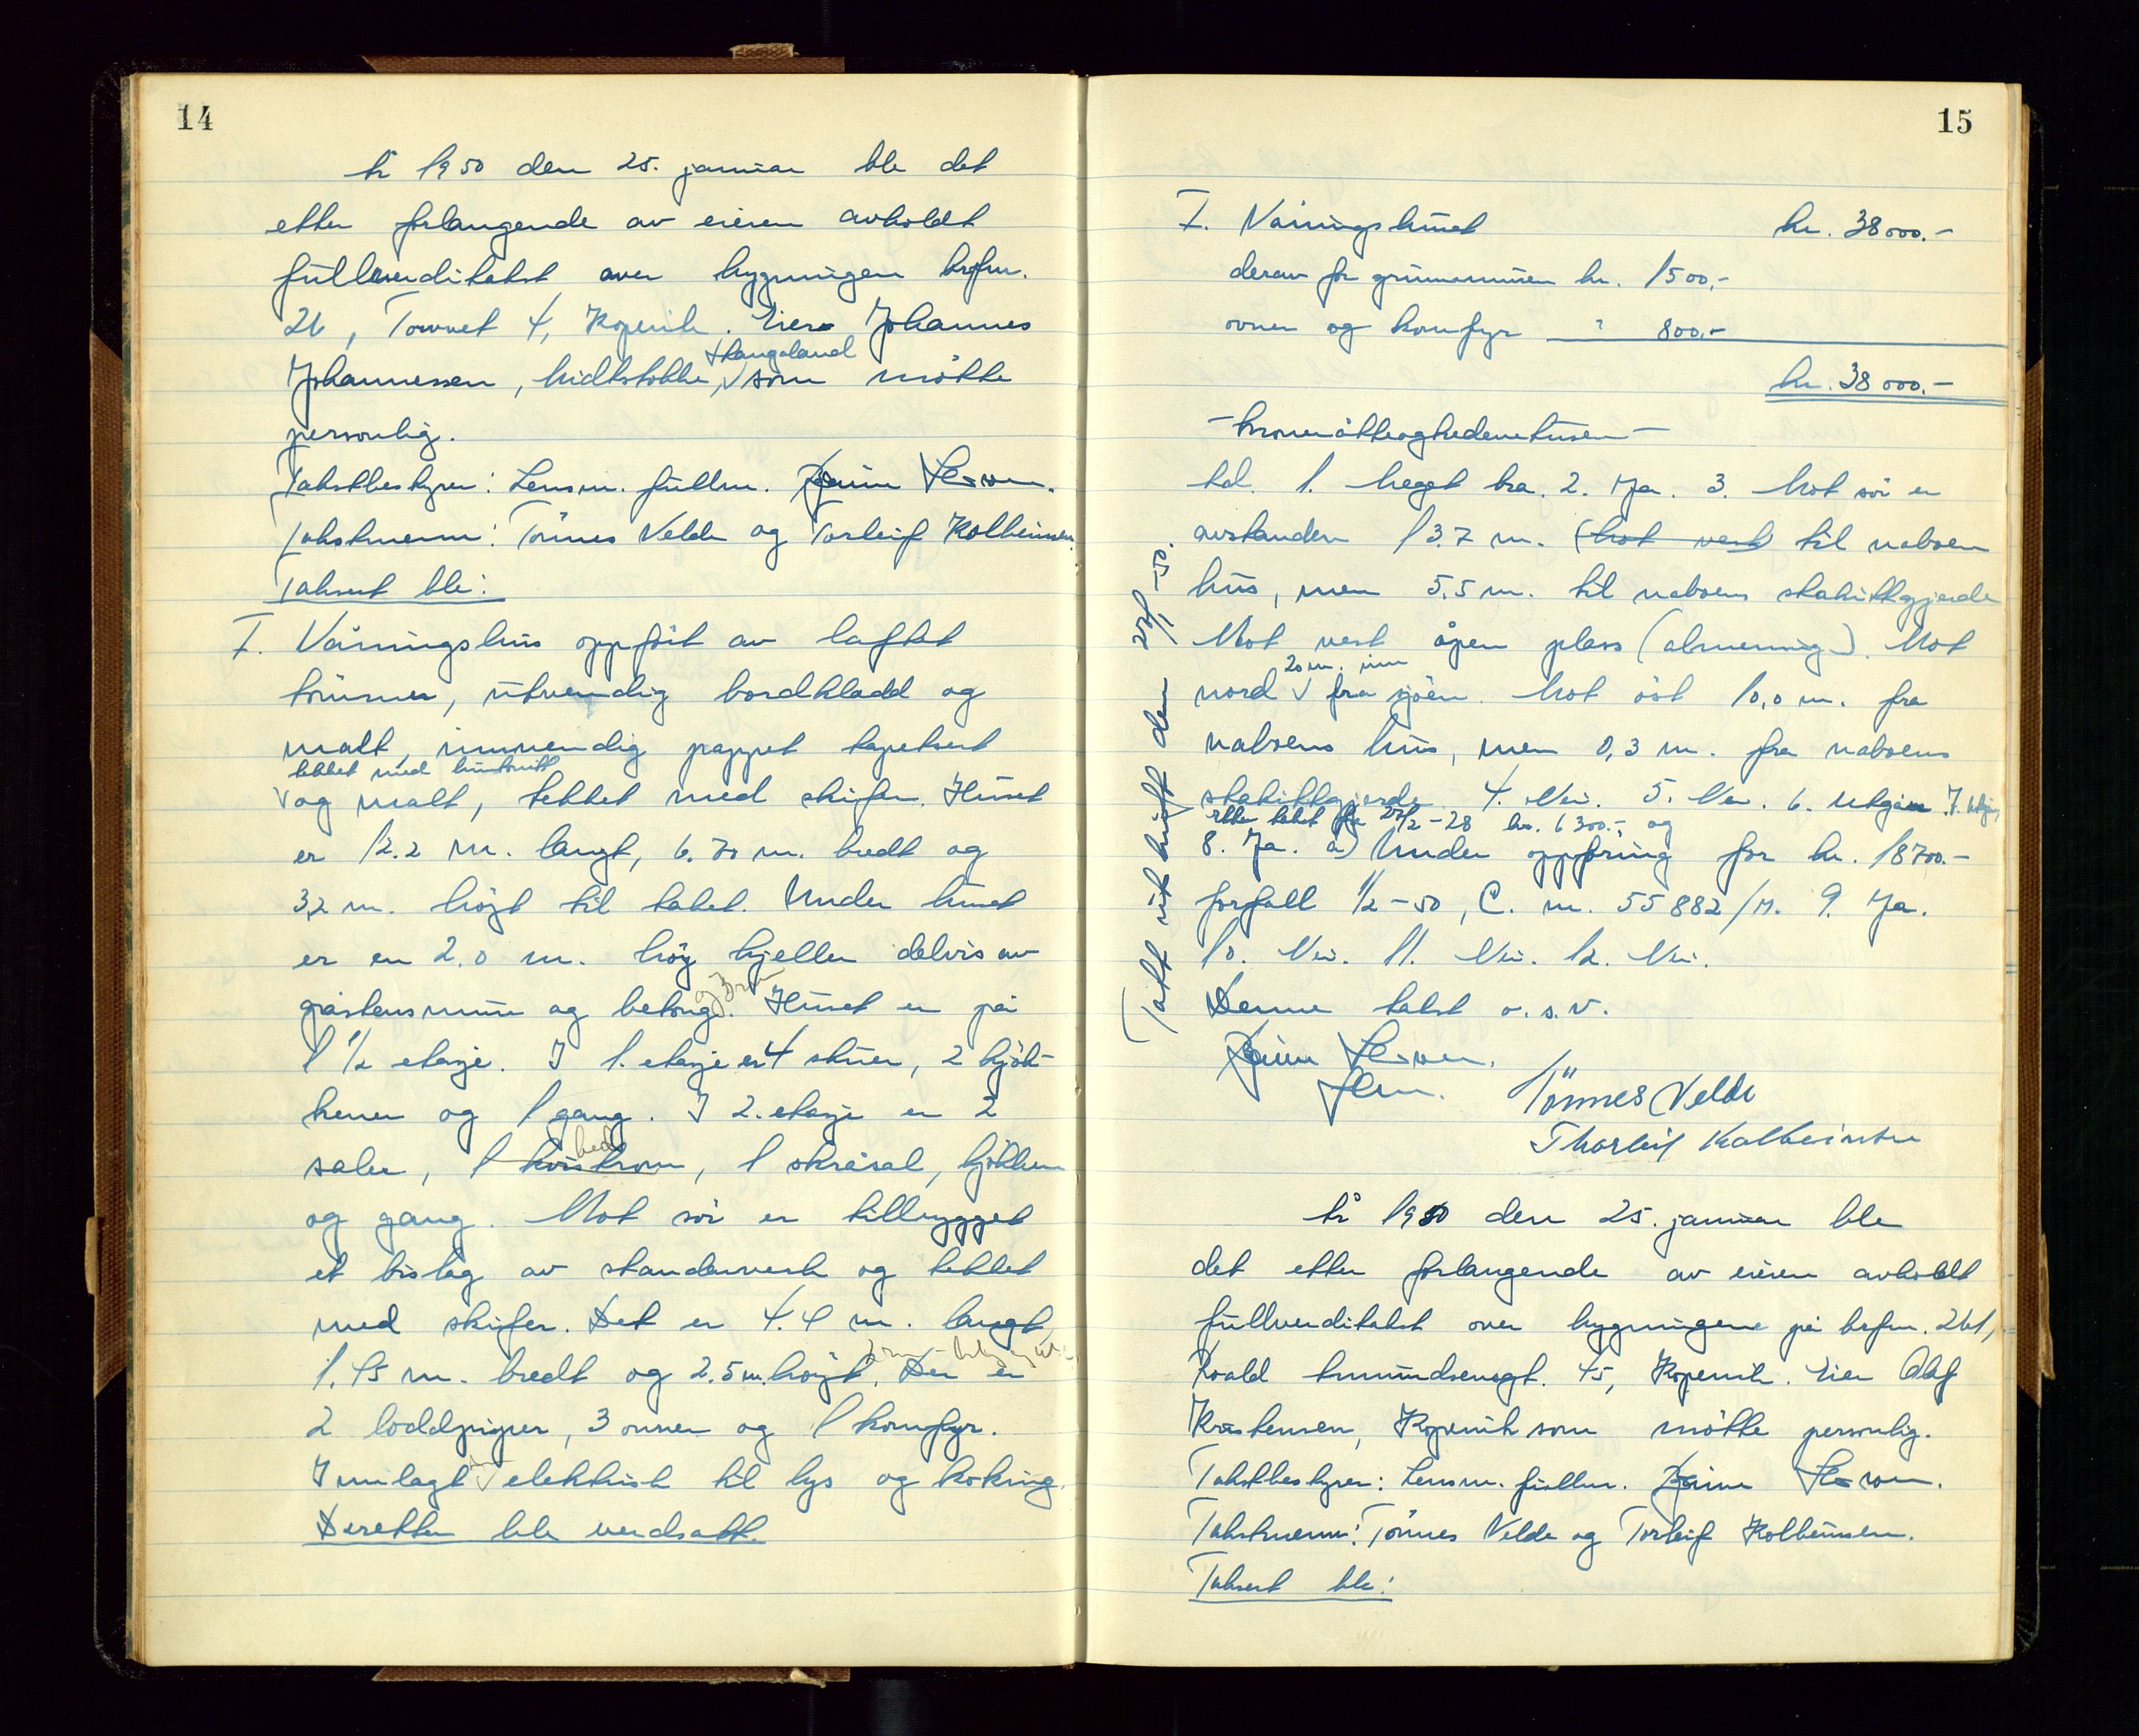 14
År 1950 den 25. januar ble det
etter forlangende av eieren avholdt
fullverditakst over bygningen brfnr.
26, Torvet 4, Kopervik. Eier Johannes
Skangaland
Johannessen, Midtstokke, som møtte
personlig.
Takstbestyrer: Lensm. fullm.
Takstmenn: Tönnes Velde og Torleif Kolbeinsen.
Taksert ble:
I. Våningshus oppfört av laftet
tömmer, utvendig bordkledd og
malt, innvendig pappet tapetsert
og malt, tekket med skifer. Huset
er 12.2 m. langt, 6.70 m. bredt og
3,2 m. höyt til taket. Under huset
er en 2.0 m. höy kjeller delvis av
gråstensmur og betong. Huset er på
1 1/2 etasje. I 1. etasje er 4 stuer, 2 kjök-
kener og 1 gang. I 2. etasje er 2
saler, 1 kvistrom, 1 skråsal, kjökken
og gang. Mot sör er tilbygget
et bislag av standerverk og tekket
med skifer. Det er 4.4 m. langt,
1.45 m. bredt og 2.5 m. höyt. Der er
2 loddpiper, 3 ovner og 1 komfyr.
Innlagt elektrisk til lys og koking.
Deretter ble verdsatt.
15
I. Våningshuset kr. 38000.-
derav for grunnmuren kr. 1500,-
ovner og komfyr " 800.-
kr. 38000.-
-kroneråtteogtredvetusen-
td. 1. Meget bra. 2. Ja. 3. Mot sör er
avstanden 13.7 m. (Mot vest) til naboens
hus, men 5.5 m. til naboens stakittgjerde
Mot vest åpen plass (almenning). Mot
20 m.
nord fra sjöen. Mot öst 10,0 m. fra
naboens hus, men 0,3 m. fra naboens
stakittgjerde. 4. Nei. 5. Nei. 6. Utgår. 7. Utgår,
etter takst fra 27/2-28 kr. 6300.-, og
8. Ja. a) Under oppföring for kr. 18700.-
forfall 1/2-50, C. nr. 55882/M. 9. Ja.
10. Nei. 11. Nei. 12. Nei.
Denne takst o.s.v.
Tönnes Velde
Thorleif Kolbeinsen
Tatt utskrift den 27/1-50.
År 1950 den 25. januar ble
det etter forlangende av eieren avholdt
fullverditakst over bygningene på brfnr. 261,
Roald Amundsensgt. 45, Kopervik. Eier Olaf
Kristensen, Kopervik som møtte personlig.
Takstbestyrer: Lensm. fullm.
Takstmenn: Tönnes Velde og Torleif Kolbeinsen.
Taksert ble: